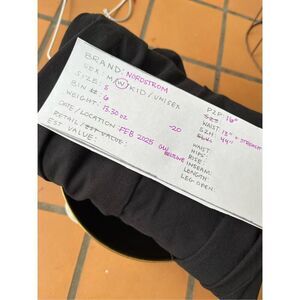 BRAND: NORDSTROM
SEX: M/W/KID/UNISEX
SIZE: S
BIN #: 6
WEIGHT: 13.30 oz
DATE/LOCATION: FEB 2025
RETAIL/EST VALUE:
EST VALUE:
-20
P2P: 16"
WAIST: 13" + STRETCH
44"
WAIST:
HIPS:
RISE:
INSEAM:
LENGTH:
LEG OPEN: